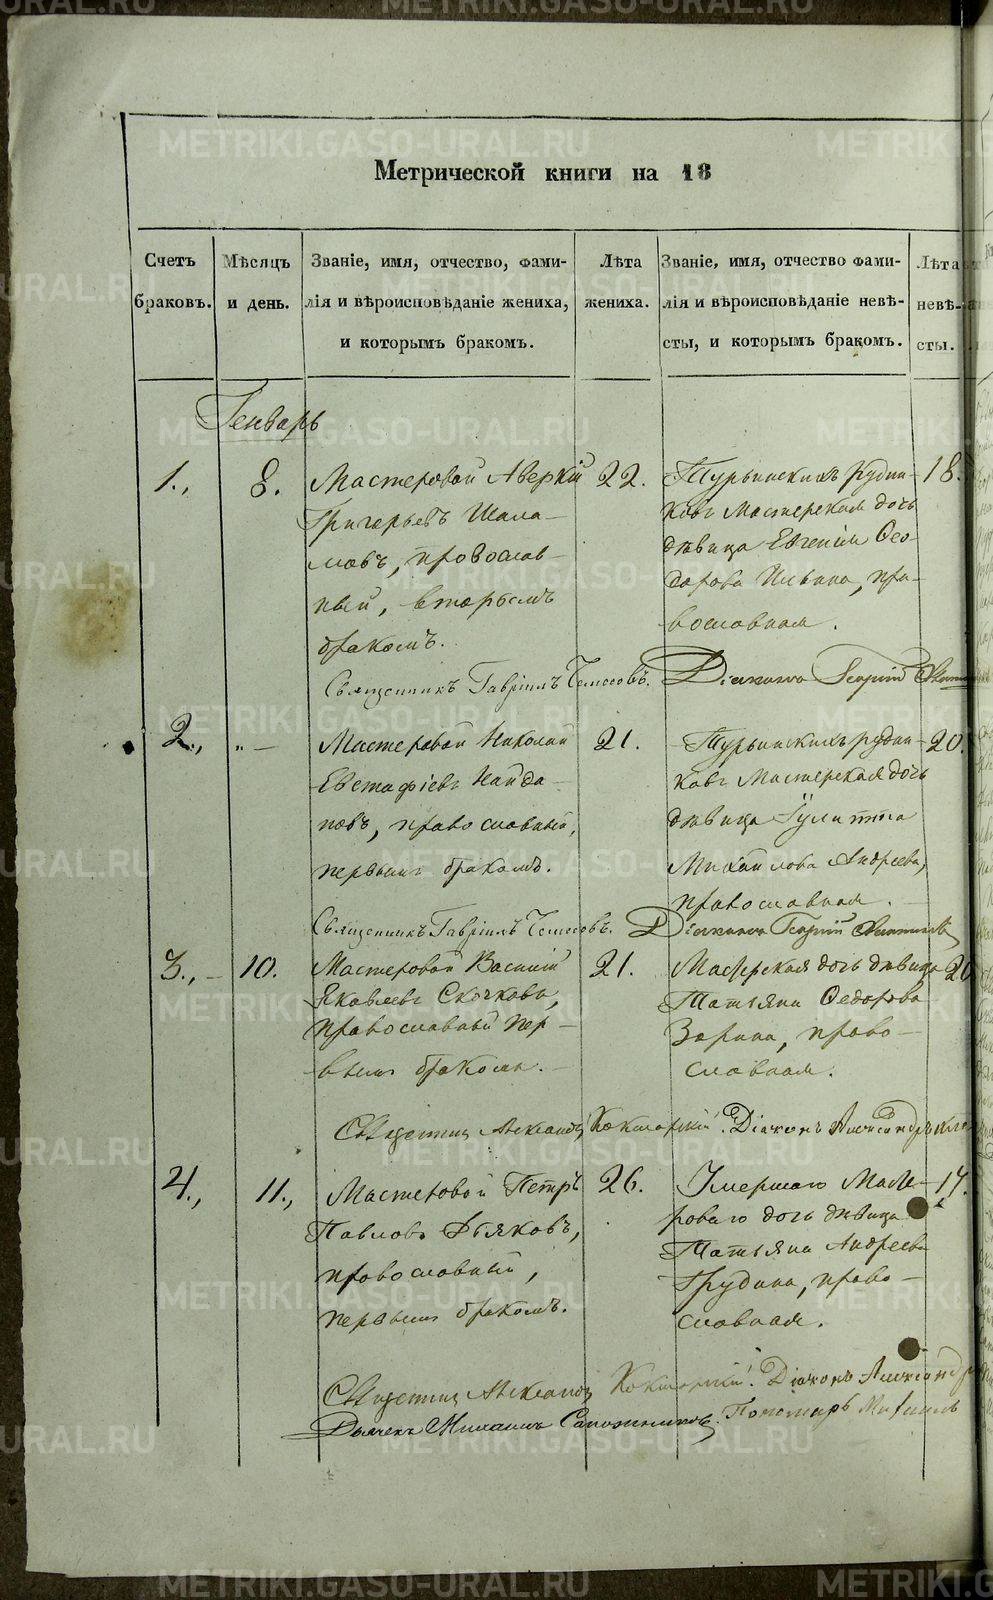 Метрической книги на 18
Счетъ браковъ.
Мѣсяцъ и день.
Званіе, имя, отчество, фами-
лія и вѣроисповѣданіе жениха,
и которымъ бракомъ.
Лѣта жениха.
Званіе, имя, отчество фами-
лія и вѣроисповѣданіе невѣ-
сты, и которымъ бракомъ.
Лѣта невѣ-
сты.
Генварь
1., 8.
Мастеровой Аверкій
Григорьевъ Шала-
мовъ, провослав-
ный, вторымъ
бракомъ.
22.
Турьинскихъ рудни-
ковъ Мастерская дочь
дѣвица Евгенія Ѳео-
дорова Ильина, пра-
вославная.
18.
Священникъ Гавріилъ Діаконъ Георгій
2., „ —
Мастеровой Николай
Евстафіевъ Найда-
новъ, православный,
первымъ бракомъ.
21.
Турьинскихъ рудни-
ковъ Мастерская дочь
дѣвица Іулитта
Михайлова Андреева,
православная.
20.
Священникъ Гавріилъ Діаконъ Георгій
3., 10.
Мастеровой Василій
Яковлевъ Скочковъ,
православный пер-
вымъ бракомъ.
21.
Мастерская дочь дѣвица
Татьяна Ѳедорова
Зорина, право-
славная.
20
Священникъ Александръ Діаконъ Александръ
4., 11.,
Мастеровой Петръ
Павловъ Дьяковъ,
православный,
первымъ бракомъ.
26.
Умершаго Масте-
роваго дочь дѣвица
Татьяна Андреева
Грудина, право-
славная.
17.
Священникъ Александръ Діаконъ Александръ
Дьячекъ Михаилъ Сапожниковъ. Пономарь Михаилъ
METRIKI.GASO-URAL.RU